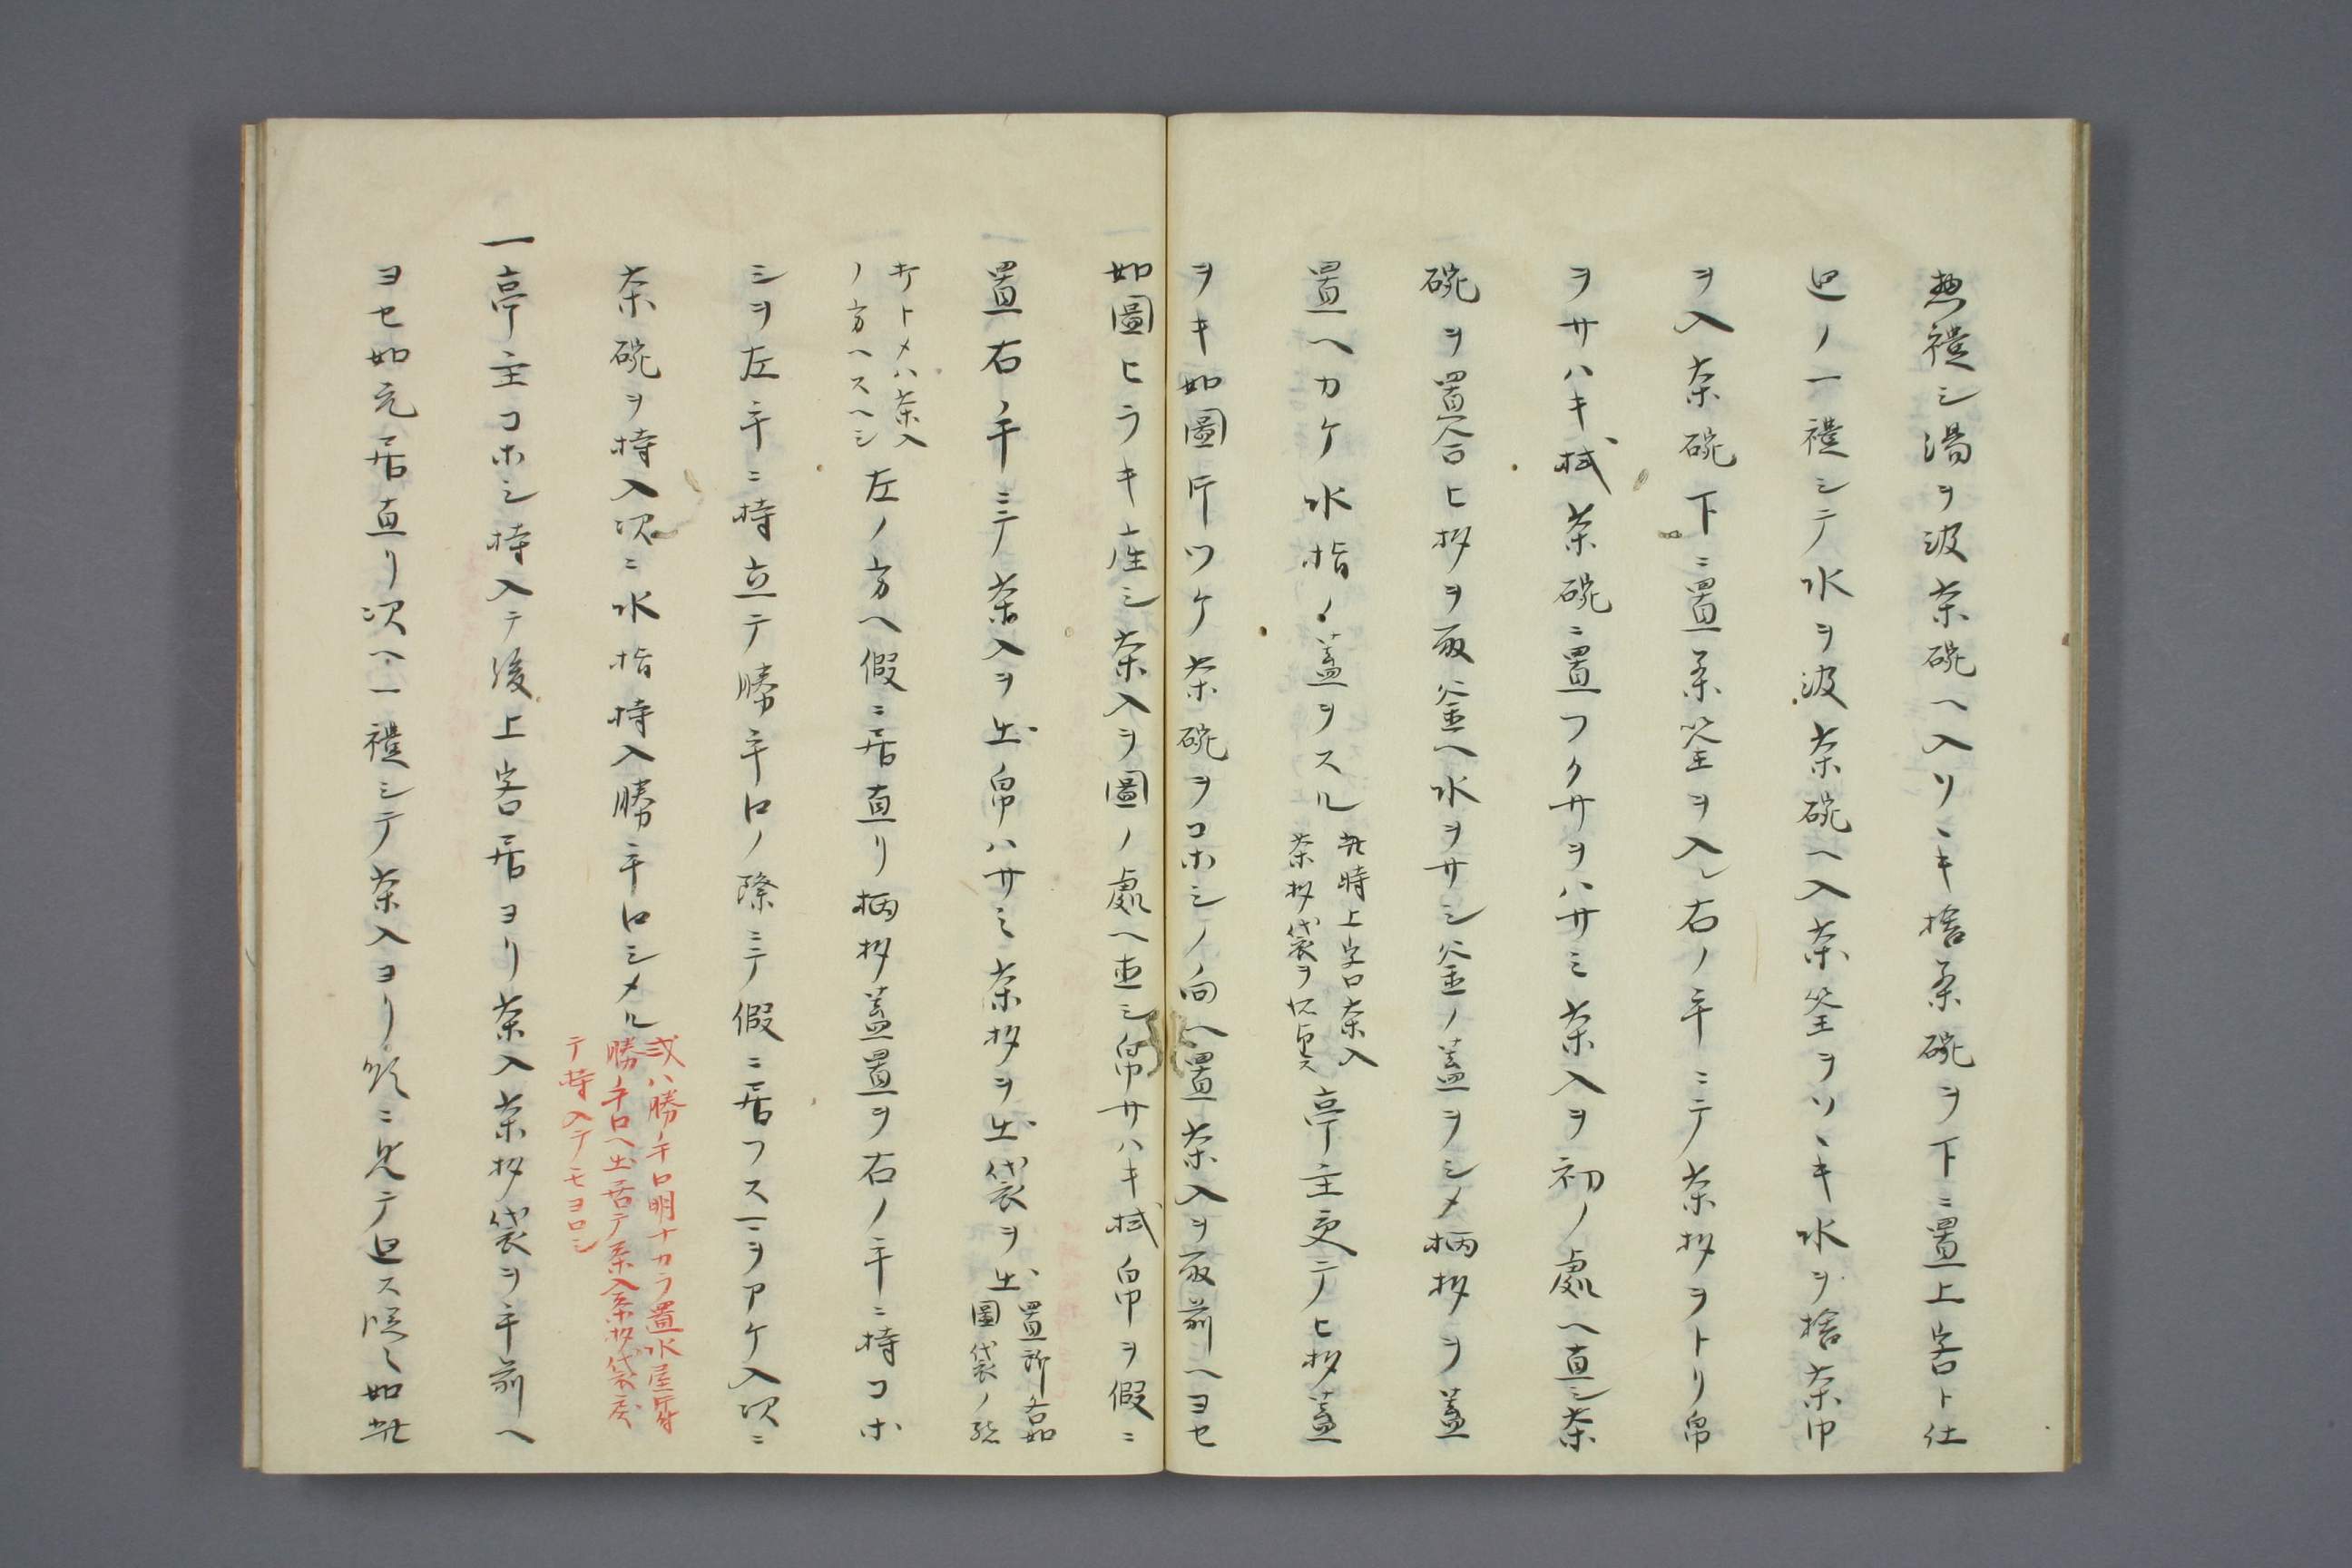 惣禮シ湯ヲ汲茶碗ヘ入ソヽキ捨茶碗ヲ下ニ置上客ト仕
廻ノ一禮シテ水ヲ汲茶碗ヘ入茶筌ヲソヽキ水ヲ捨茶巾
ヲ入茶碗下ニ置茶筌ヲ入レ右ノ手ニテ茶杓ヲトリ帛
ヲサハキ拭茶碗ニ置フクサヲハサミ茶入ヲ初ノ處ヘ直シ茶
碗ヲ置合ヒ杓ヲ取釜ヘ水ヲサシ釜ノ蓋ヲシメ柄杓ヲ蓋
置ヘカケ水指ノ蓋ヲスル
此時上客口茶入
茶杓袋ヲ
亭主受テヒ杓蓋
ヲキ如圖片ツケ茶碗ヲコホシノ向ヘ置茶入ヲ取前ヘヨセ
如圖ヒラキ座シ茶入ヲ圖ノ處ヘ直シ帛サハキ拭帛ヲ假ニ
置右ノ手ニテ茶入ヲ出帛ハサミ茶杓ヲ出袋ヲ出
置所各如
圖袋ノ
キトメハ茶入
ノ方ヘスヘシ
左ノ方ヘ假ニ居直リ柄杓蓋置ヲ右ノ手ニ持コホ
シヲ左手ニ持立テ勝手口ノ際ニテ假ニ居フスマヲアケ入次ニ
茶碗ヲ持入次ニ水指持入勝手口シメル
或ハ勝手口明ナカラ置水屋
勝手口ヘ出居テ茶入茶杓袋
テ持入テモヨロシ
一亭主コホシ持入テ後上客居ヨリ茶入茶杓袋ヲ手前ヘ
ヨセ如元居直リ次ヘ一禮シテ茶入ヨリ順ニ見テ廻ス如此